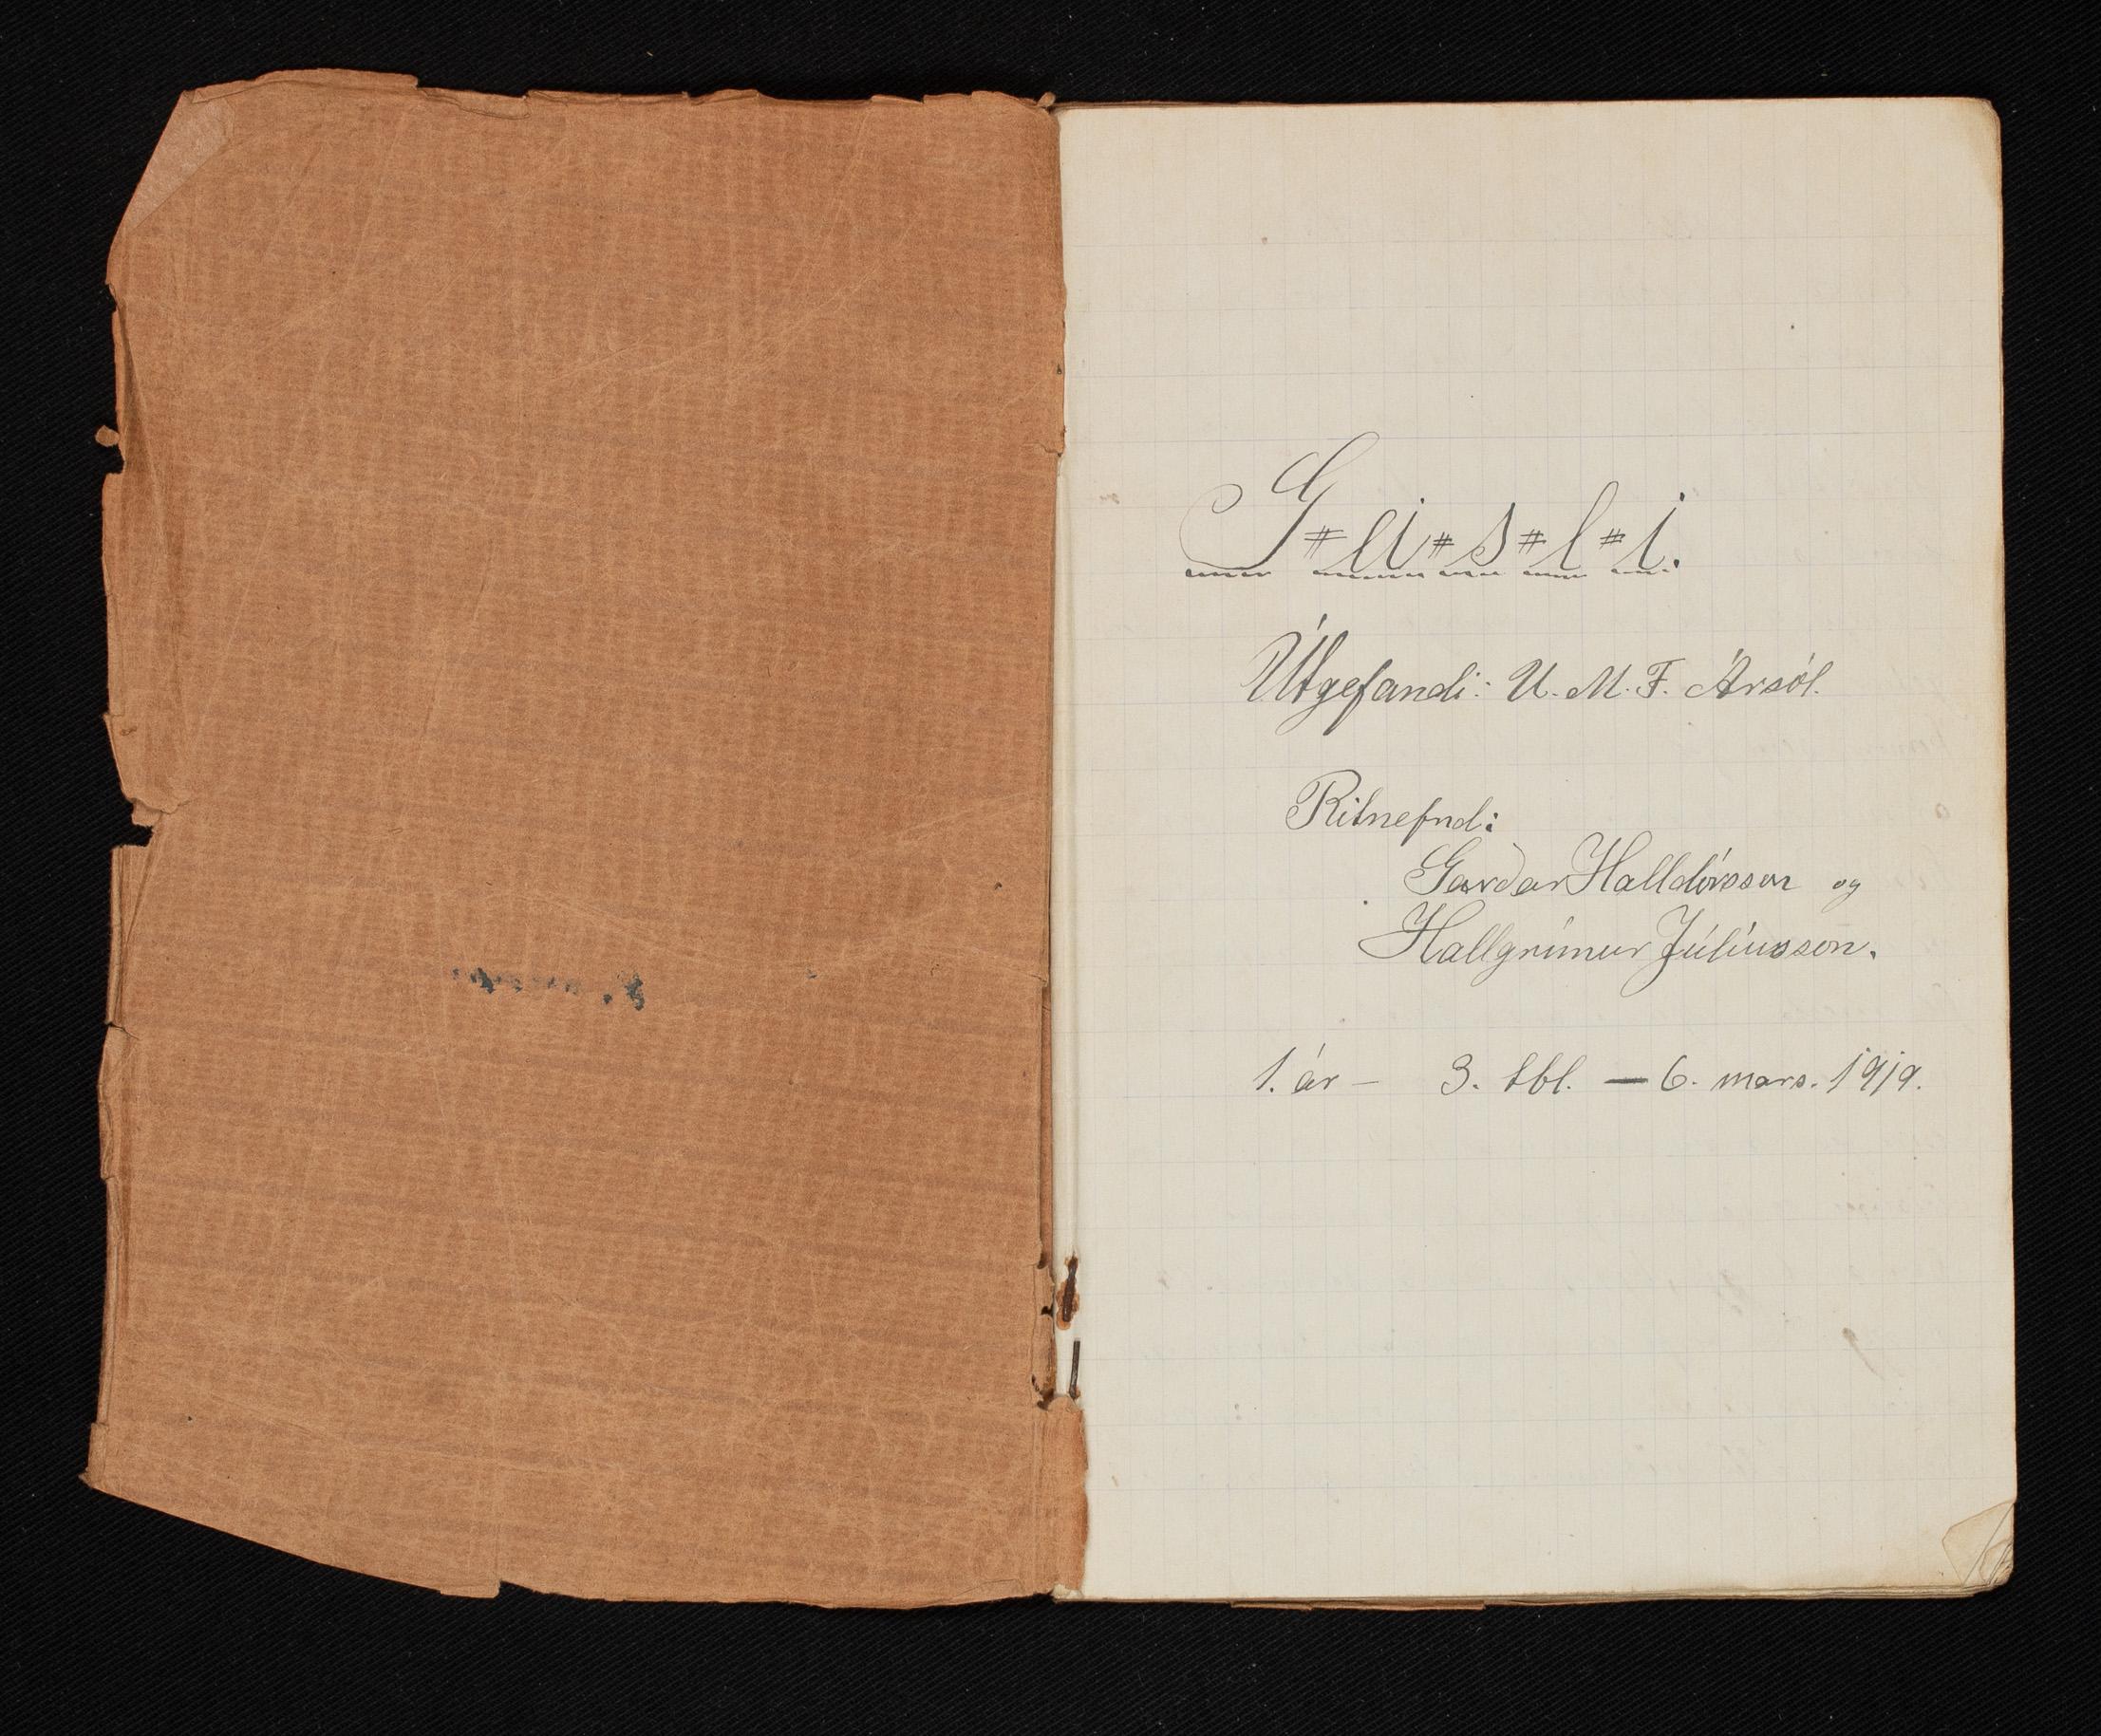 G # ei # s # l # i.
Útgefandi: U. M. F. Ársól.
Ritnefnd:
Garðar Halldórsson og
Hallgrímur Júlíusson.
1. ár – 3. tbl. — 6. mars. 1919.